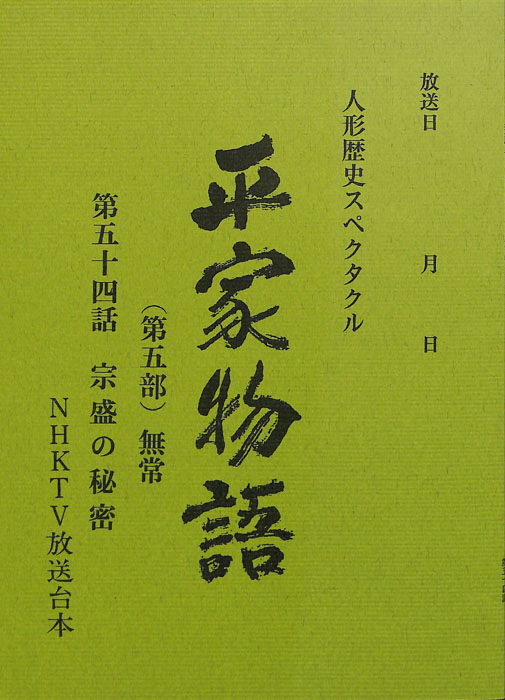 放送日　月　日
人形歴史スペクタクル
平家物語
（第五部）無常
第五十四話　宗盛の秘密
NHKTV放送台本